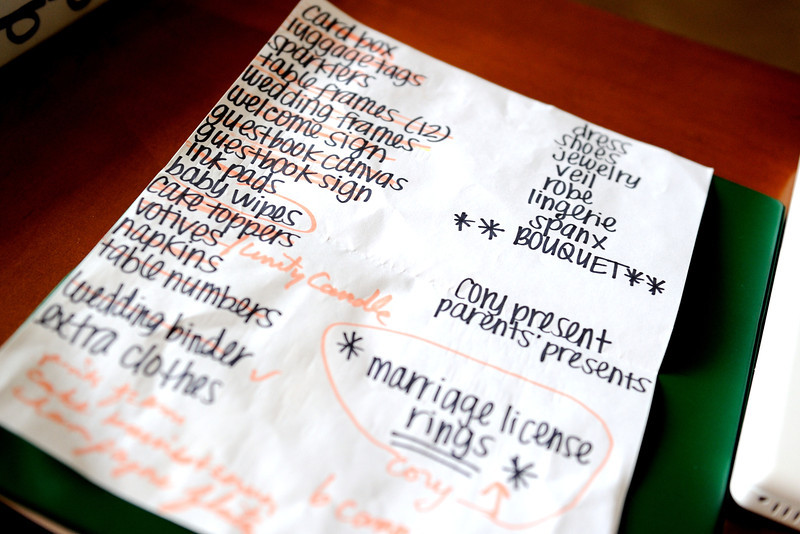 card box
luggage tags
sparklers
table frames (12)
wedding frames
welcome sign
guestbook canvas
guestbook sign
ink pads
baby wipes
cake toppers
votives / unity candle
napkins
table numbers
wedding binder ✓
extra clothes
dress
shoes
jewelry
veil
robe
lingerie
spanx
** BOUQUET**
cory present
parents' presents
* marriage license
rings *
cory